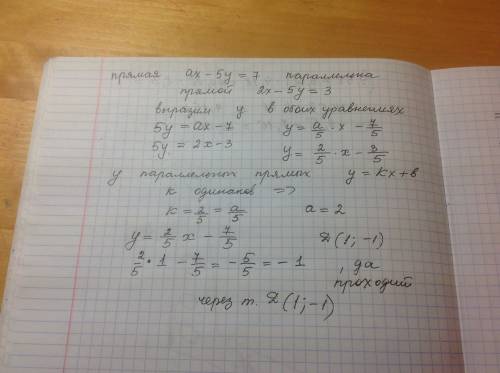 прямая ax - 5y = 7 параллельна
прямой 2x - 5y = 3
выразим y в обоих уравнениях
5y = ax - 7 y = a/5 · x - 7/5
5y = 2x - 3 y = 2/5 · x - 3/5
у параллельных прямых y = kx + b
k одинаков =>
k = 2/5 = a/5 a = 2
y = 2/5 x - 7/5 D (1; -1)
2/5 · 1 - 7/5 = - 5/5 = - 1 , да
проходит
через т. D (1; -1)